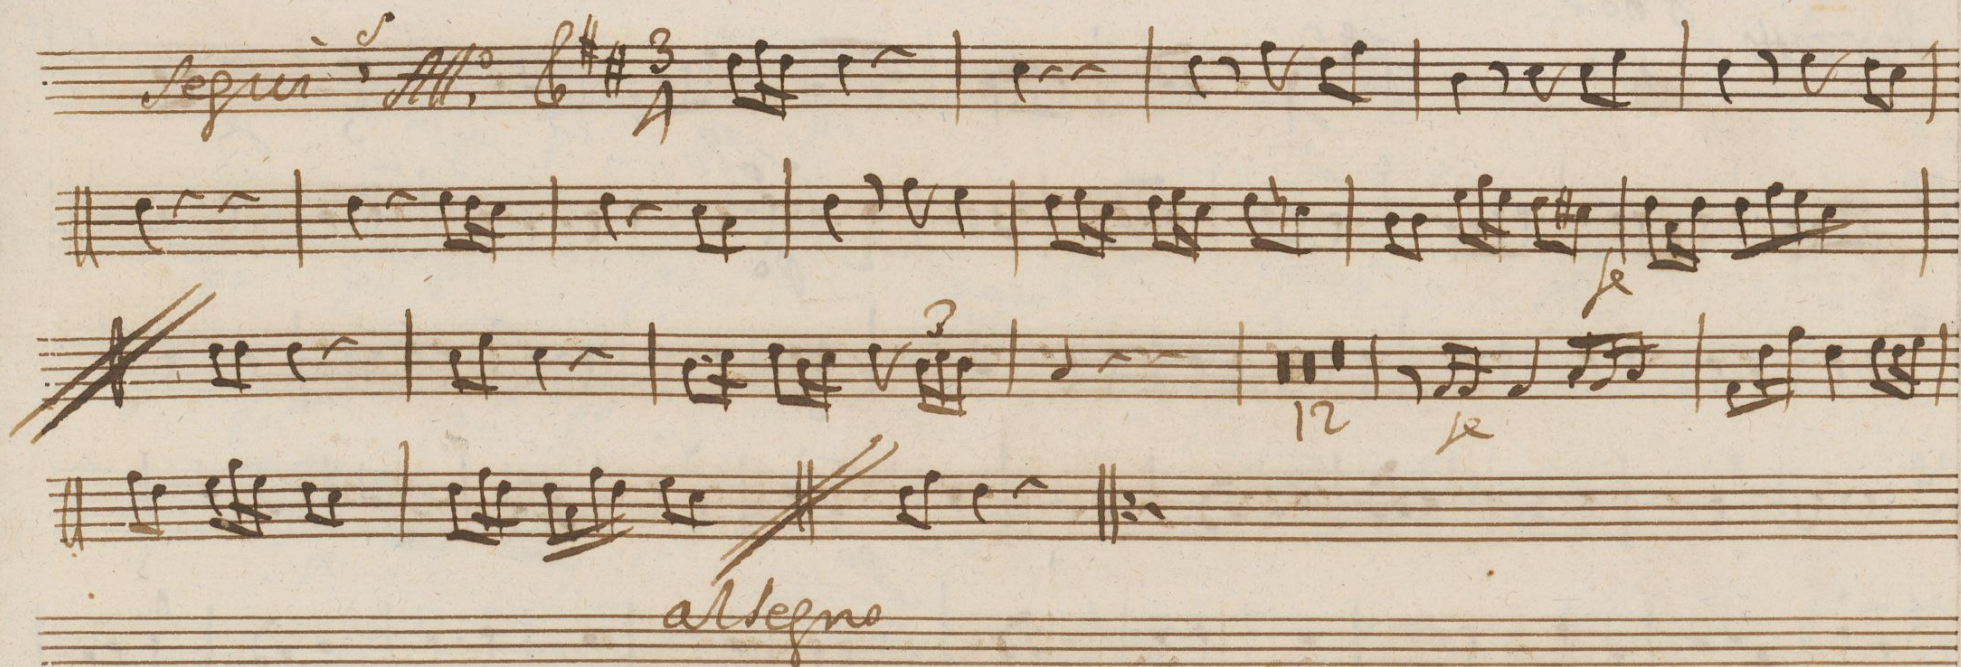 Segui All.º 3
4
3
12
al segno